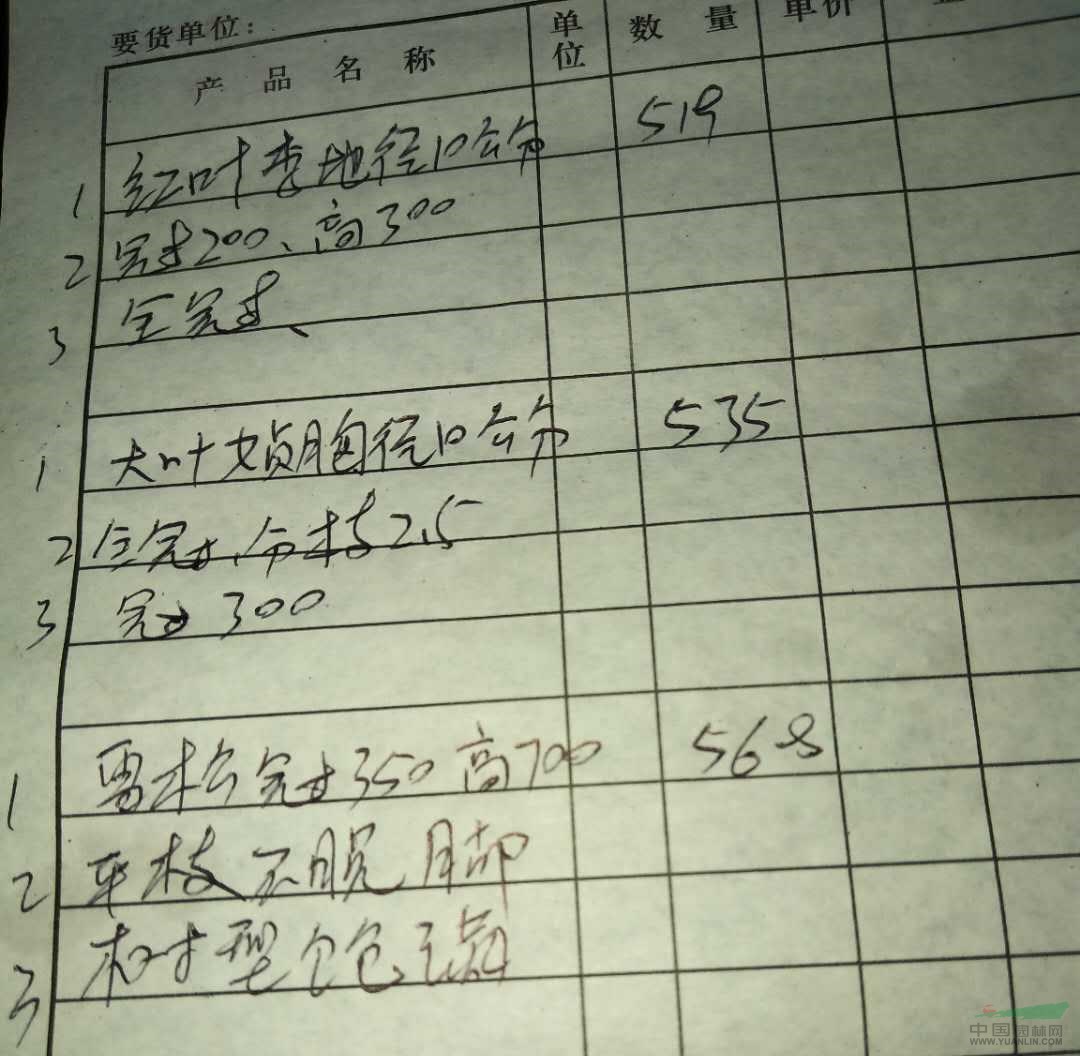 要货单位:
产品名称 单位 数量 单价
1 红叶李地径10公分 519
2 冠过200、高300
3 全冠过、
1 大叶女贞胸径10公分 535
2 全冠过、分枝2.5
3 冠过300
1 雪松冠过350高700 568
2 平枝不脱脚
3 树型饱满
中国园林网
WWW.YUANLIN.COM